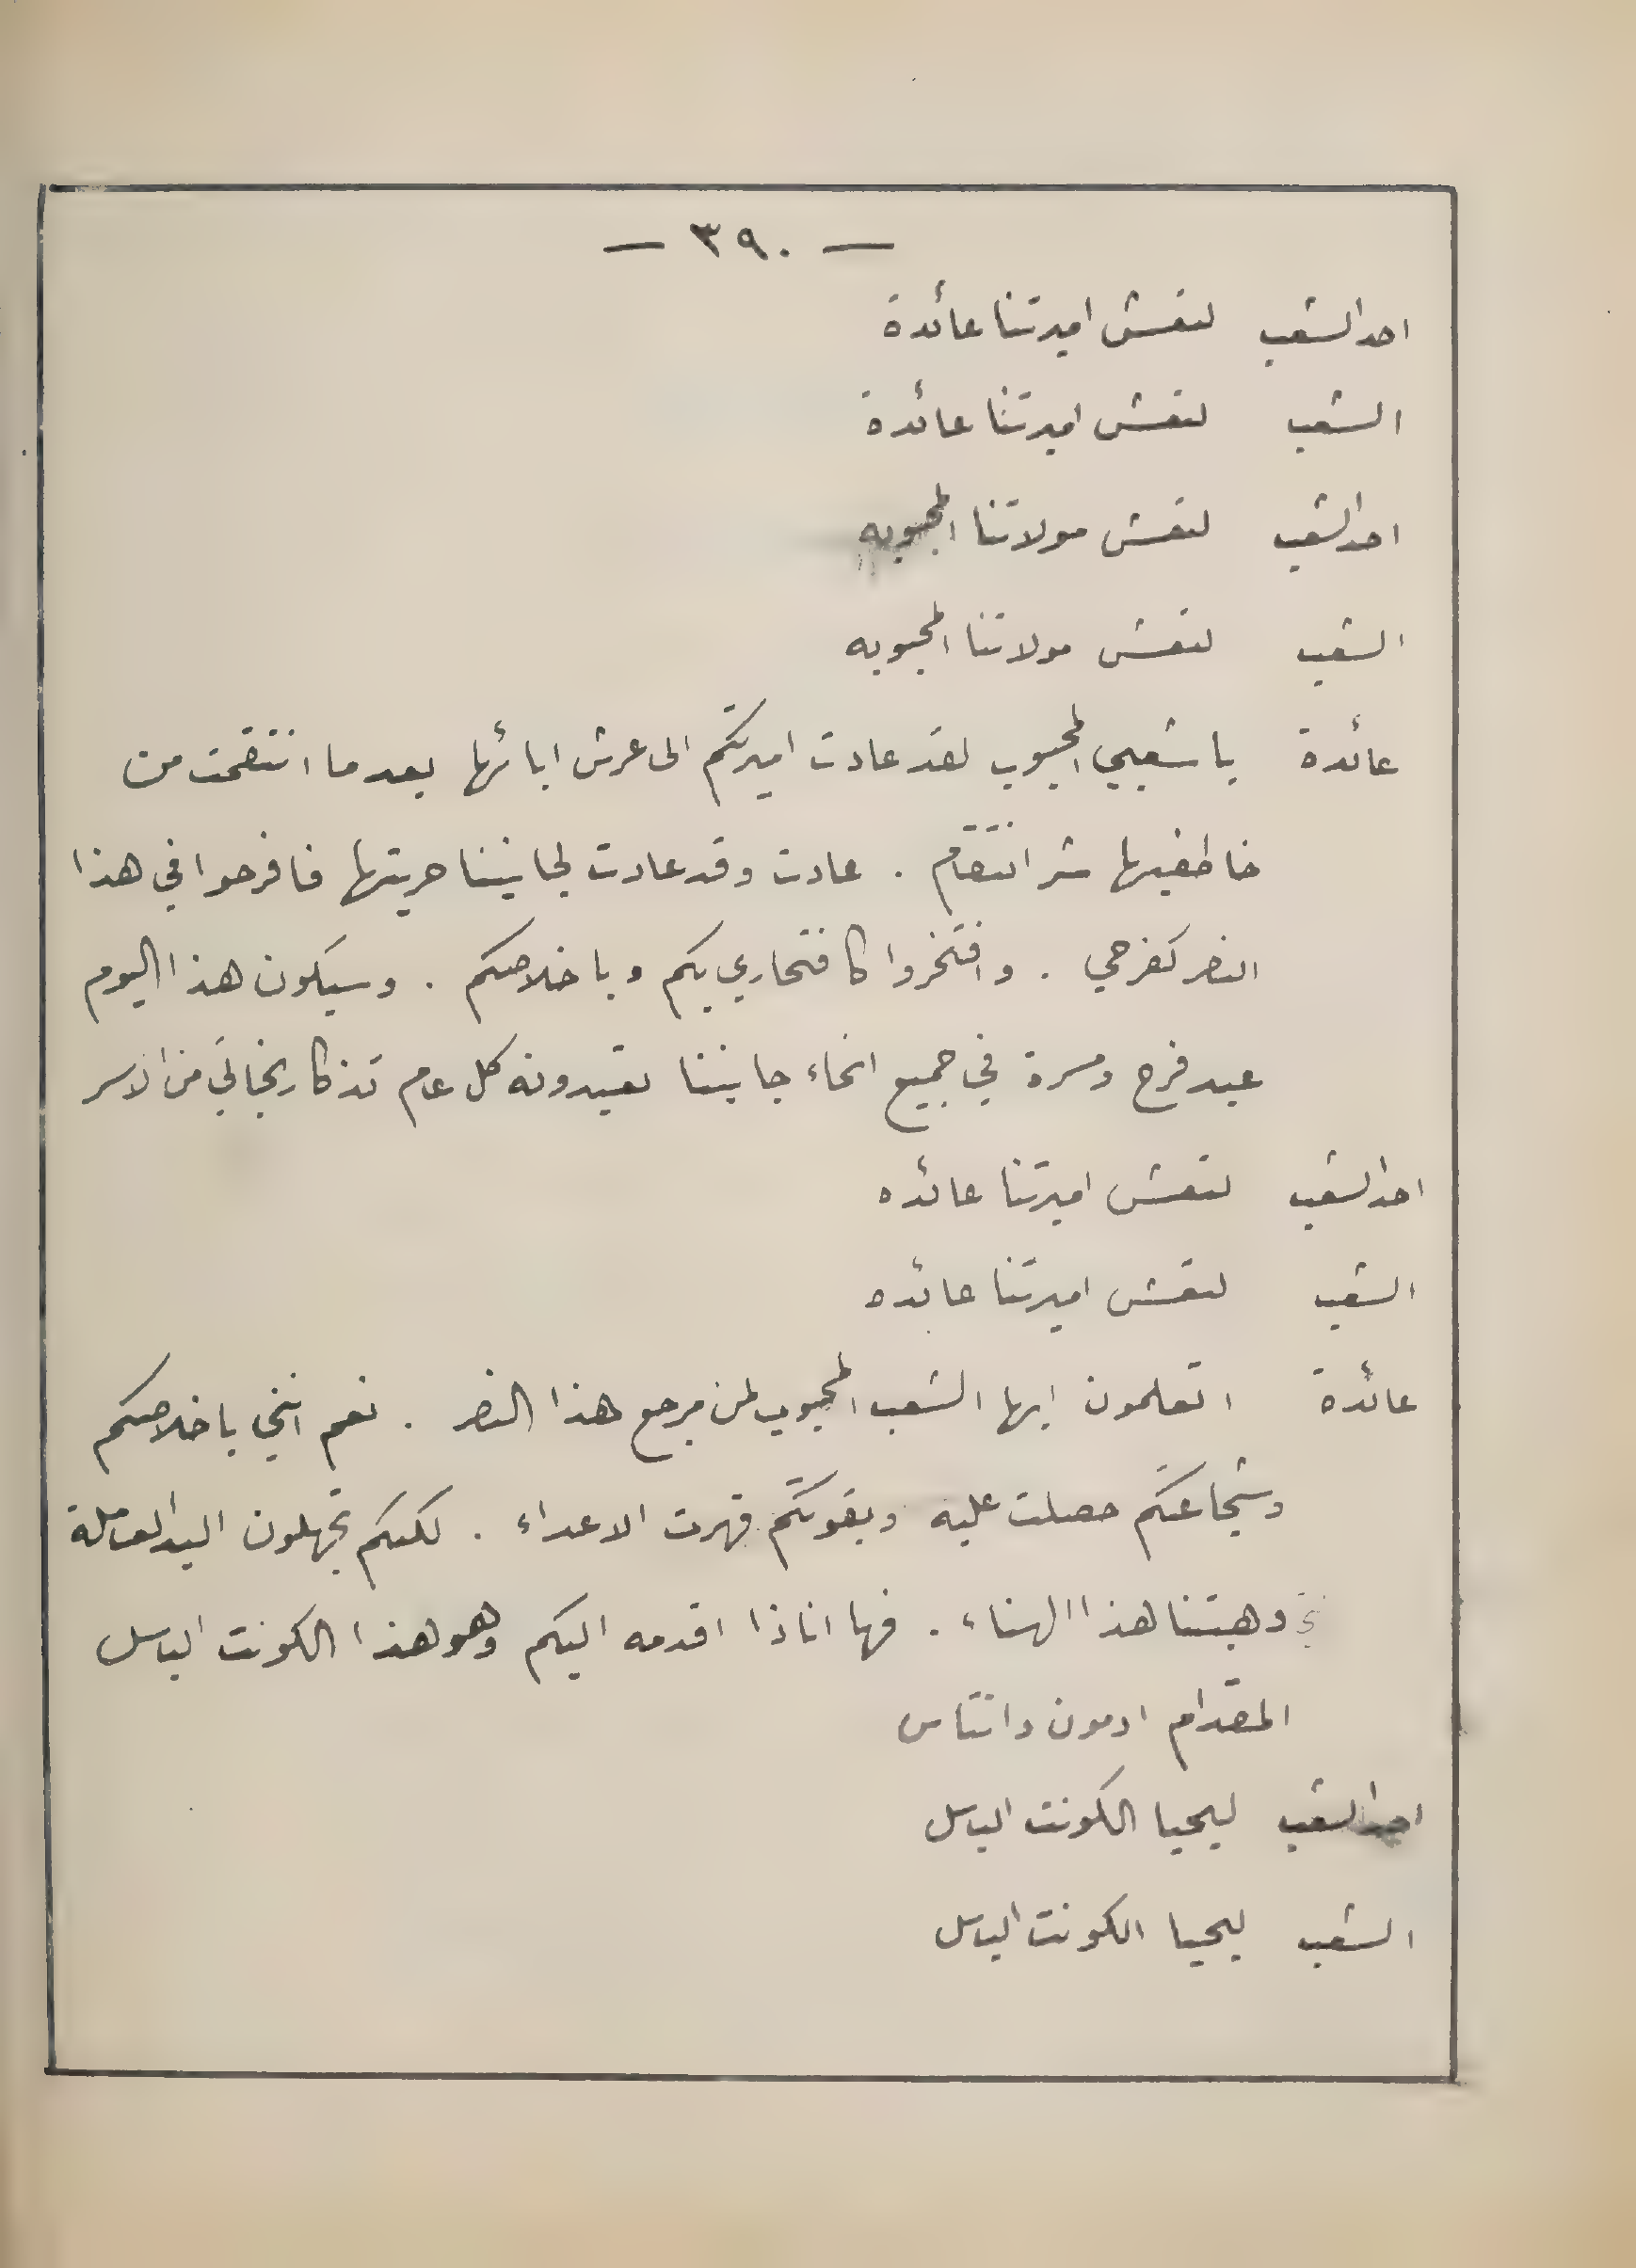 — ٣٩٠ —
احد الشعب لتعش اميرتنا عائدة
الشعب لتعش اميرتنا عائدة
احد الشعب لتعش مولاتنا المحبوبه
الشعب لتعش مولاتنا المحبوبه
عائدة يا شعبي المحبوب لقد عادت اميرتكم الى عرش ابائها بعدما انتقمت من
خاطفيها شر انتقام . عادت وقد عادت لجانيننا حريتها فافرحوا في هذا
النصر كفرحي . وافتخروا كافتخاري بكم وباخلاصكم . وسيكون هذا اليوم
عيد فرح ومسرة في جميع انحاء جانيننا تعيدونه كل عام تذكار نجاتي من الاسر
احد الشعب لتعش اميرتنا عائده
الشعب لتعش اميرتنا عائده
عائدة اتعلمون ايها الشعب المحبوب لمن مرجع هذا النصر . نعم انني باخلاصكم
وشجاعتكم حصلت عليه وبقوتكم قهرت الاعداء . لكنكم تجهلون اليد العاملة
وهبتنا هذا الهناء . فها اناذا اقدمه اليكم وهو هذا الكونت الباسل
المقدام ادمون دانتاس
احد الشعب ليحيا الكونت الباسل
الشعب ليحيا الكونت الباسل